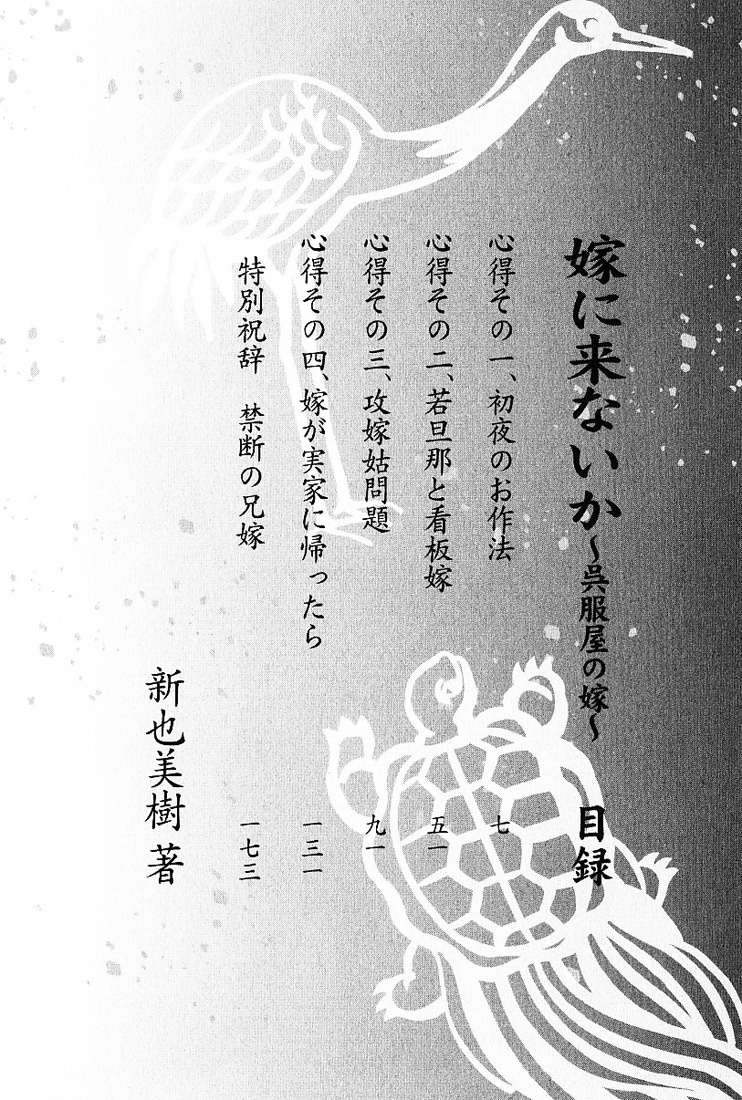 嫁に来ないか～呉服屋の嫁～ 目録
心得その一、初夜のお作法 七
心得その二、若旦那と看板嫁 五一
心得その三、攻嫁姑問題 九一
心得その四、嫁が実家に帰ったら 一三一
特別祝辞 禁断の兄嫁 一七三
新也美樹 著